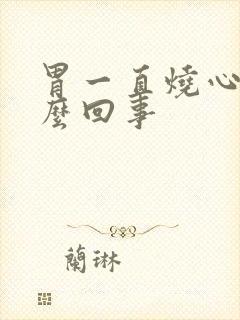 胃一直燒心
麼回事
蘭琳